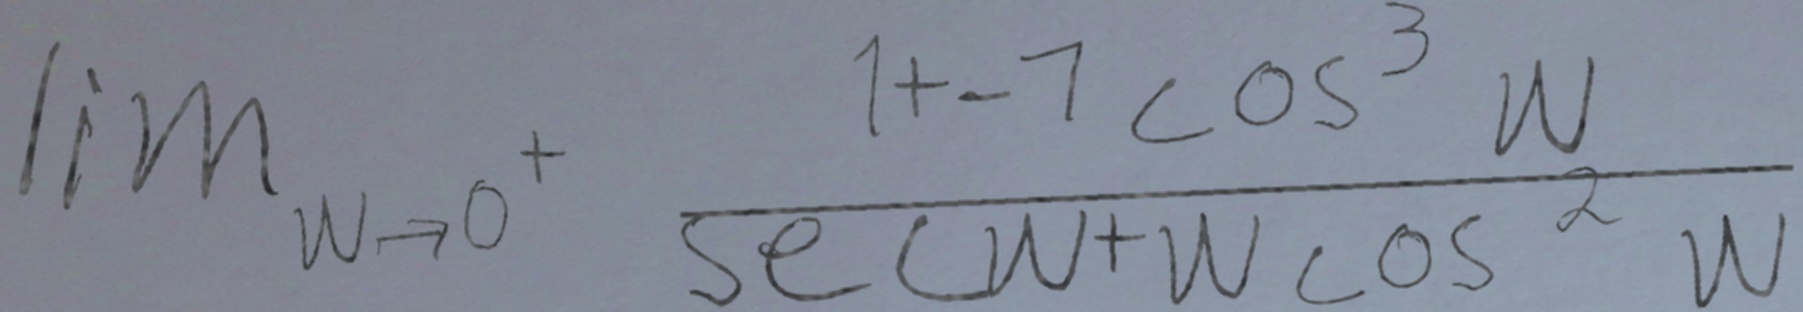 \lim_{w \to 0^+} \frac{1+-1\cos^3 w}{\sec w+w\cos^2 w}